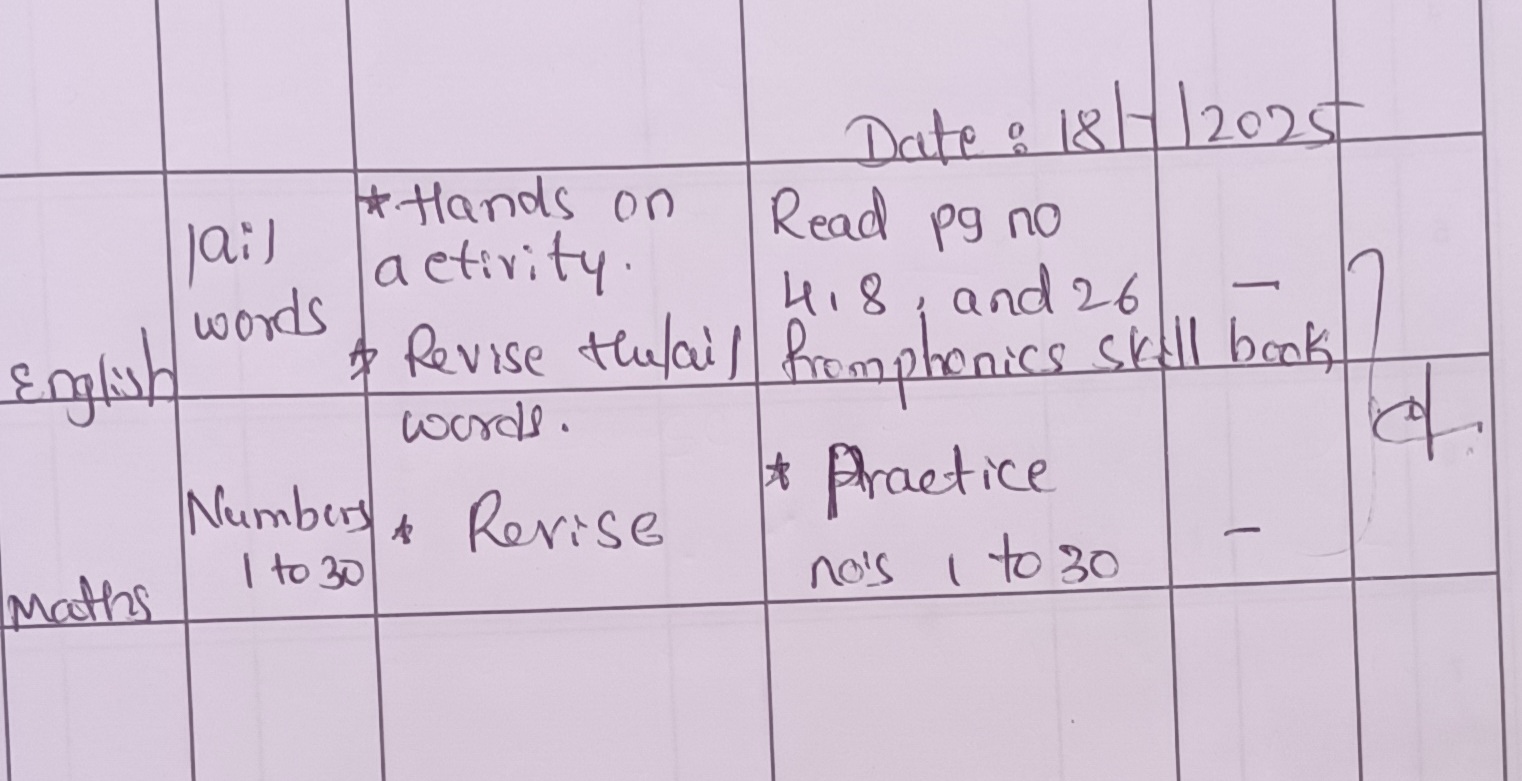 Date : 18/7/2025
English
/ai/
words
* Hands on
activity.
* Revise the /ai/
words.
Read pg no
4, 8, and 26
from phonics skill book
-
Maths
Numbers
1 to 30
* Revise
* Practice
no's 1 to 30
-